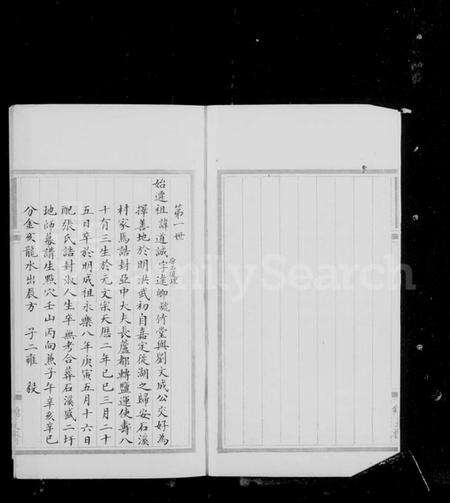 第一世
始遷祖諱道誠字達卿號倚堂與劉文成公交好為
擇善地於明洪武初自嘉定徙湖之歸安石溪
村家焉誥封亞中大夫長蘆都轉鹽運使壽八
十有三生於元文宗天曆二年己巳三月二十
五日卒於明成祖永樂八年庚寅五月十六日
配張氏誥封淑人生卒無考合葬石溪盛二圩
地師慕講生點穴壬山丙向兼子午辛亥辛巳
分金亥龍水出辰方 子二雍 毅
FamilySearch